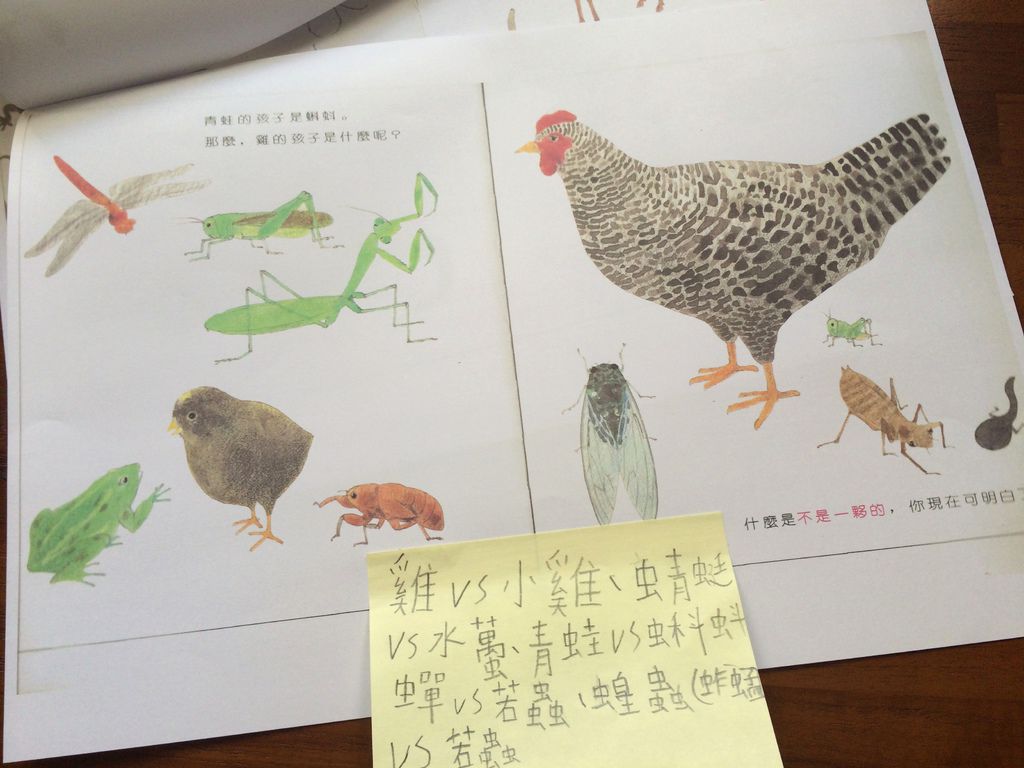 青蛙的孩子是蝌蚪。
那麼，雞的孩子是什麼呢？
什麼是不是一夥的，你現在可明白了
雞 VS 小雞、蜻蜓
VS 水蠆、青蛙 VS 蝌蚪
蟬 VS 若蟲、蝗蟲(蚱蜢
VS 若蟲